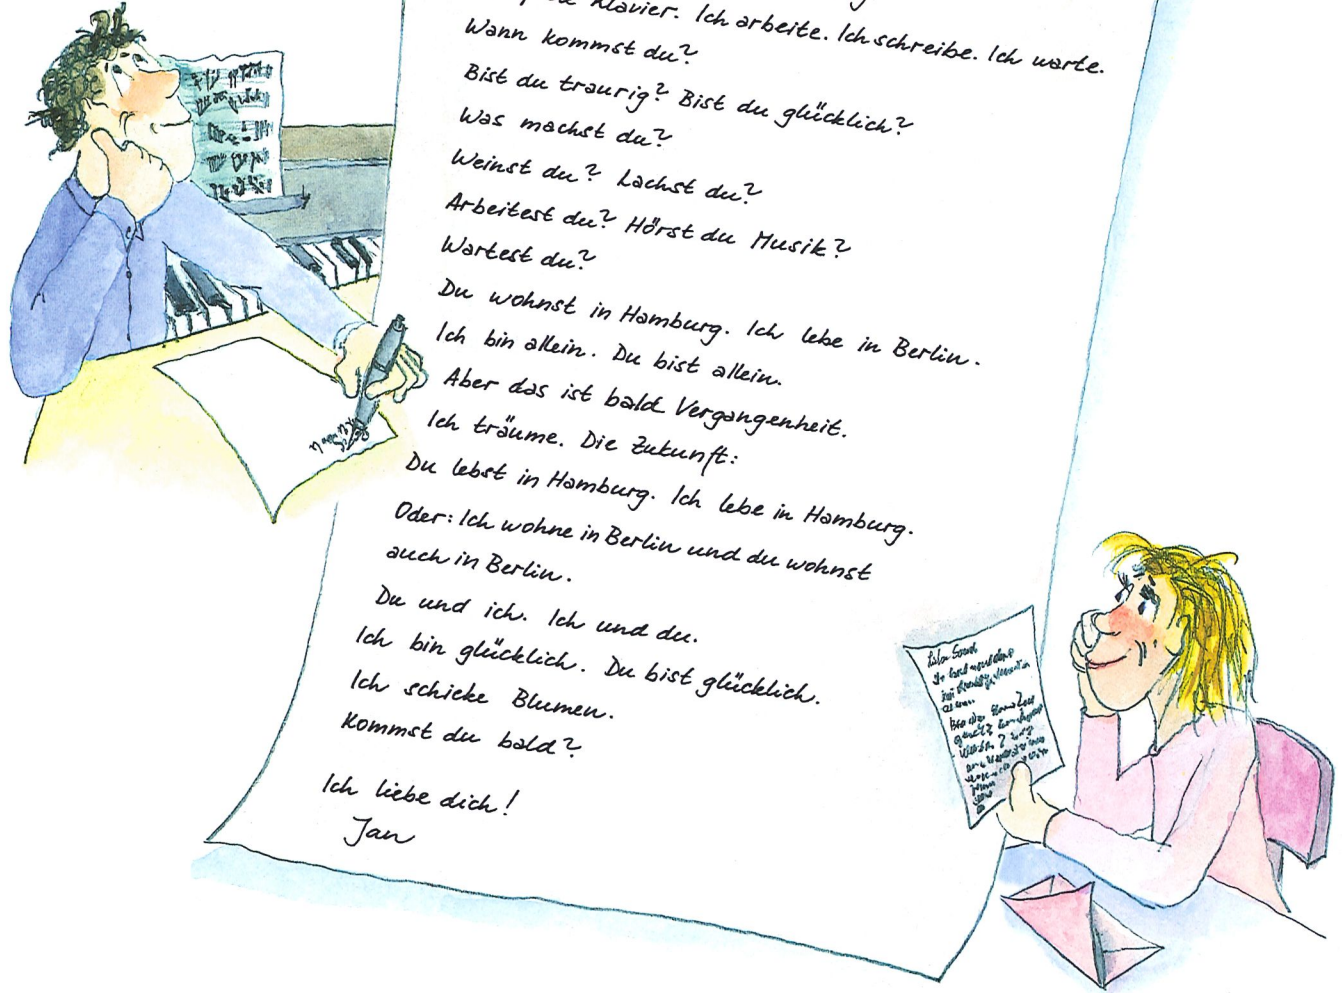 Klavier. Ich arbeite. Ich schreibe. Ich warte.
Wann kommst du?
Bist du traurig? Bist du glücklich?
Was machst du?
Weinst du? Lachst du?
Arbeitest du? Hörst du Musik?
Wartest du?
Du wohnst in Hamburg. Ich lebe in Berlin.
Ich bin allein. Du bist allein.
Aber das ist bald Vergangenheit.
Ich träume. Die Zukunft:
Du lebst in Hamburg. Ich lebe in Hamburg.
Oder: Ich wohne in Berlin und du wohnst
auch in Berlin.
Du und ich. Ich und du.
Ich bin glücklich. Du bist glücklich.
Ich schicke Blumen.
Kommst du bald?
Ich liebe dich!
Jan